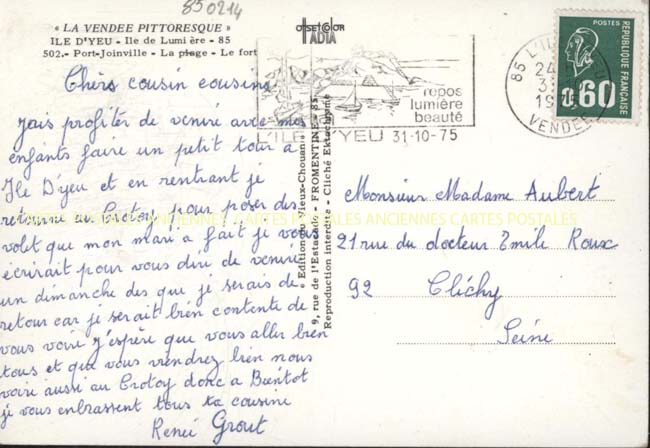 850214
« LA VENDEE PITTORESQUE »
ILE D'YEU - Ile de Lumière - 85
502.- Port-Joinville - La plage - Le fort
OFSETCOLOR
IRIS
Chèrs cousin cousine
Jais profitér de veniré avec mes
enfants faire un petit tour a
Ile D'yeu et en rentrant je
retourne au Crotoy pour poser des
volet que mon mari a fait je vous
écrirait pour vous dire de veniré
un dimanche des que je serais de
retour car je serait bien contente de
vous voire j'espère que vous aller bien
tous et que vous viendrez bien nous
voire aussi au Crotoy donc a Bientot
je vous enbrassent tous ta cousine
Reneé Grout
repos
lumière
beauté
L'ILE D'YEU 31-10-75
85 L'ILE
24
3
19
VENDEE
POSTES
REPUBLIQUE FRANÇAISE
0,60
« Edition du Vieux-Chouan »
9, rue de l'Estacade - FROMENTINE - 85
Reproduction interdite - Cliché Ektachrome
Monsieur Madame Aubert
21 rue du docteur Emile Roux
92 Clichy
Seine
CARTES POSTALES ANCIENNES CARTES POSTALES